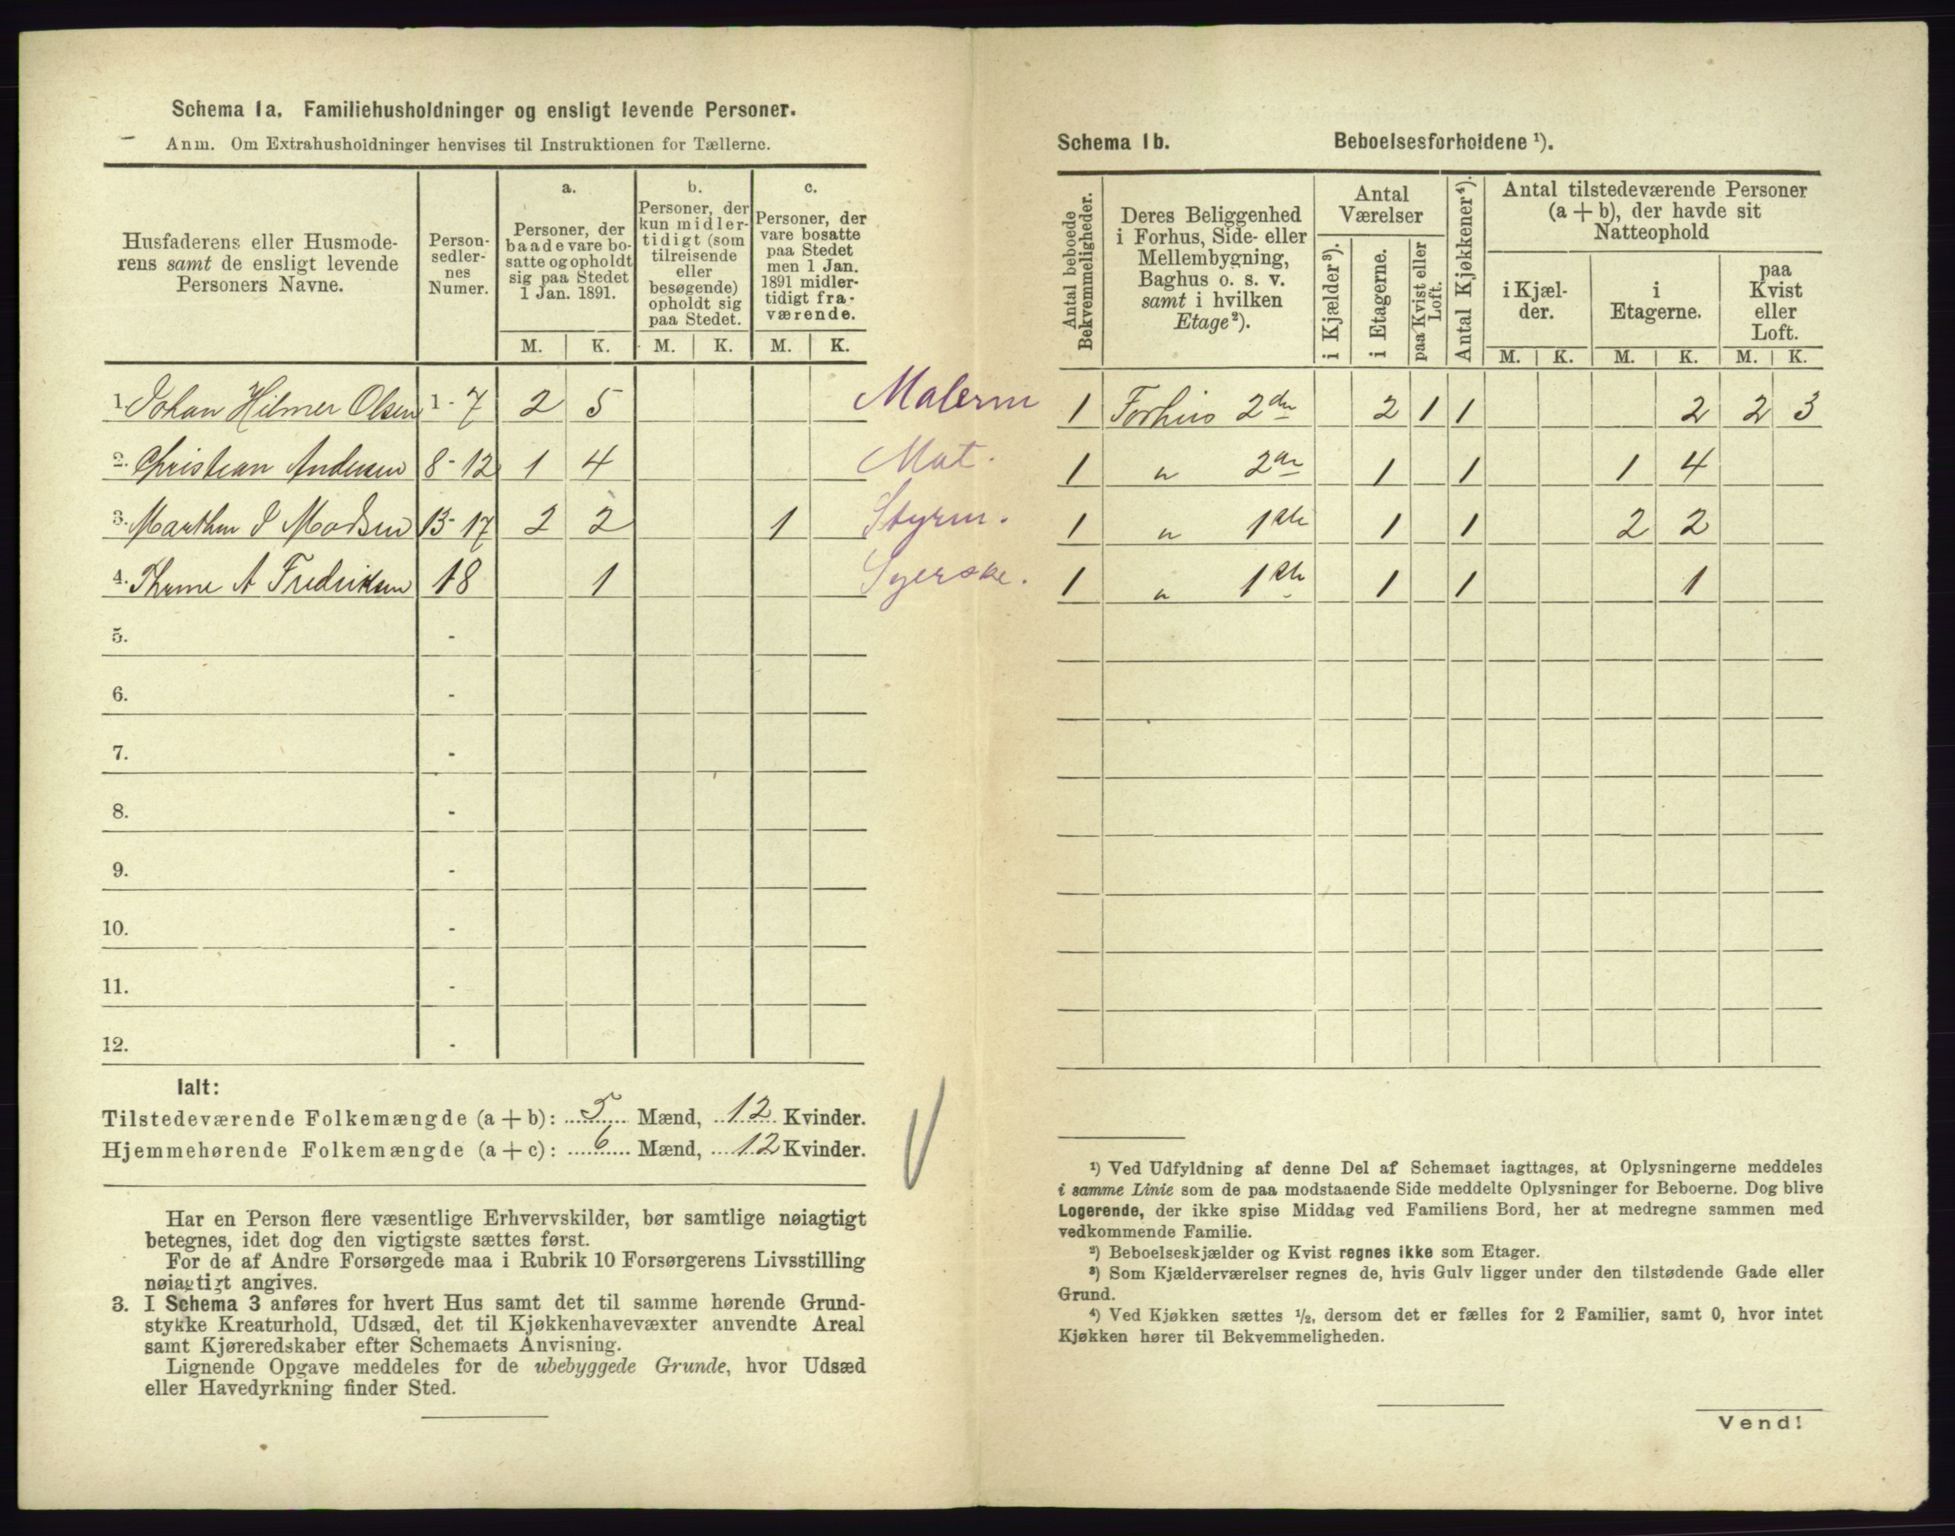 Schema 1a. Familiehusholdninger og ensligt levende Personer.
Anm. Om Extrahusholdninger henvises til Instruktionen for Tællerne.
Husfaderens eller Husmode-
rens samt de ensligt levende
Personers Navne.
Person-
sedler-
nes
Numer.
a.
Personer, der
baade vare bo-
satte og opholdt
sig paa Stedet
1 Jan. 1891.
b.
Personer, der
kun midler-
tidigt (som
tilreisende
eller
besøgende)
opholdt sig
paa Stedet.
c.
Personer, der
vare bosatte
paa Stedet
men 1 Jan.
1891 midler-
tidigt fra-
værende.
M. K. M. K. M. K.
1. Johan Hilmer Olsen 1 - 7 2 5 Malerm
2. Christian Andersen 8 - 12 1 4 Mat.
3. Marthin J Madsen 13 - 17 2 2 1 Styrm.
4. A Fredriksen 18 1 Syerske.
5. -
6. -
7. -
8. -
9. -
10. -
11. -
12. -
Ialt:
Tilstedeværende Folkemængde (a + b): 5 Mænd, 12 Kvinder.
Hjemmehørende Folkemængde (a + c): 6 Mænd, 12 Kvinder.
Har en Person flere væsentlige Erhvervskilder, bør samtlige nøiagtigt
betegnes, idet dog den vigtigste sættes først.
For de af Andre Forsørgede maa i Rubrik 10 Forsørgerens Livsstilling
nøiagtigt angives.
3. I Schema 3 anføres for hvert Hus samt det til samme hørende Grund-
stykke Kreaturhold, Udsæd, det til Kjøkkenhavevæxter anvendte Areal
samt Kjøreredskaber efter Schemaets Anvisning.
Lignende Opgave meddeles for de ubebyggede Grunde, hvor Udsæd
eller Havedyrkning finder Sted.
Schema 1b. Beboelsesforholdene ¹).
Antal beboede
Bekvemmeligheder.
Deres Beliggenhed
i Forhus, Side- eller
Mellembygning,
Baghus o. s. v.
samt i hvilken
Etage²).
Antal
Værelser
i Kjælder³).
i Etagerne.
paa Kvist eller
Loft.
Antal Kjøkkener⁴).
Antal tilstedeværende Personer
(a + b), der havde sit
Natteophold
i Kjæl-
der.
i
Etagerne.
paa
Kvist
eller
Loft.
M. K. M. K. M. K.
1 Forhus 2den 2 1 1 2 2 3
1 " 2den 1 1 1 4
1 " 1ste 1 1 2 2
1 " 1ste 1 1 1
¹) Ved Udfyldning af denne Del af Schemaet iagttages, at Oplysningerne meddeles
i samme Linie som de paa modstaaende Side meddelte Oplysninger for Beboerne. Dog blive
Logerende, der ikke spise Middag ved Familiens Bord, her at medregne sammen med
vedkommende Familie.
²) Beboelseskjælder og Kvist regnes ikke som Etager.
³) Som Kjælderværelser regnes de, hvis Gulv ligger under den tilstødende Gade eller
Grund.
⁴) Ved Kjøkken sættes ½, dersom det er fælles for 2 Familier, samt 0, hvor intet
Kjøkken hører til Bekvemmeligheden.
Vend!